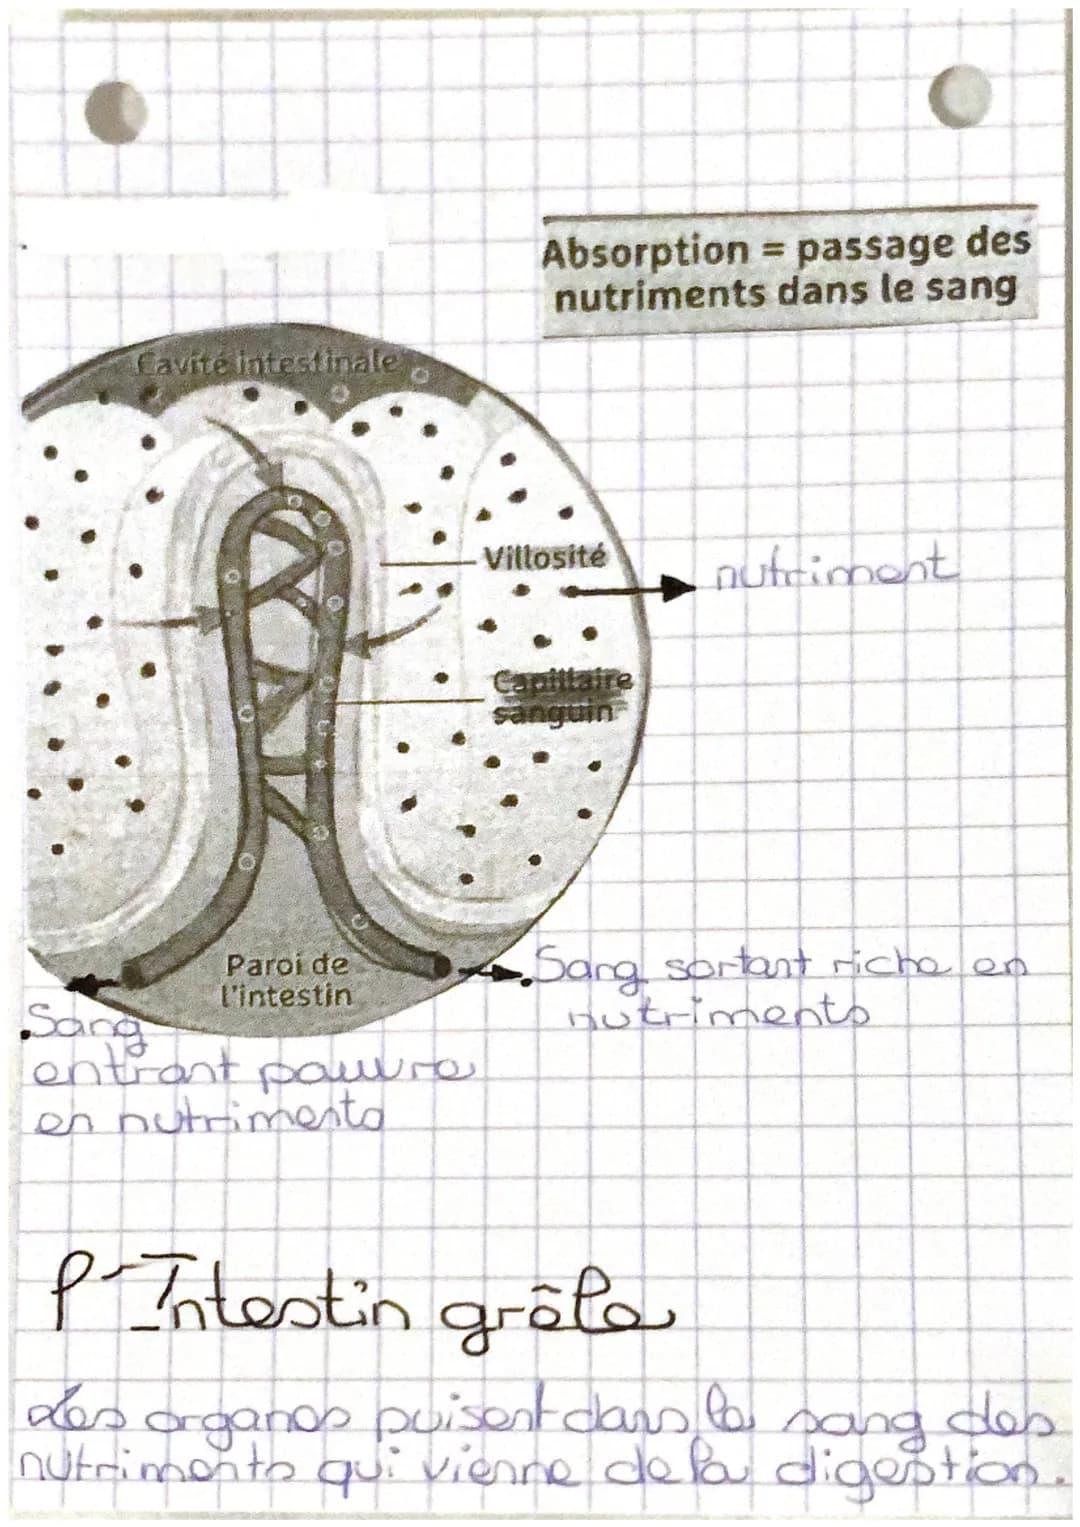 Absorption = passage des
nutriments dans le sang
Cavité intestinale
Villosité
nutriment
Capillaire
sanguin
Paroi de
l'intestin
Sang sortant riche en
nutriments
Sang
entrant pauvre
en nutriments
l'Intestin grêle
des organes puisent dans le sang des
nutriments qui vienne de la digestion.